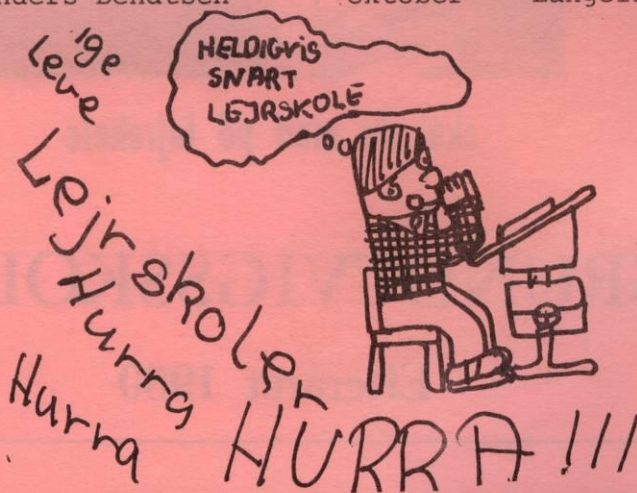 Bendtsen oktober
'ge
leve
HELDIGVIS
SNART
LEJRSKOLE
Lejrskoler
Hurra
Hurra
HURRA !!!